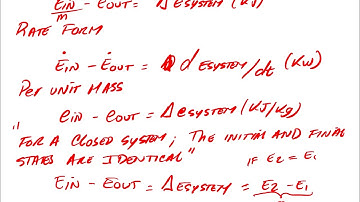 EIN - EOUT = ΔESYSTEM (KJ)
m
RATE FORM
ĖIN - ĖOUT = dESYSTEM/dt (KW)
PER UNIT MASS
eIN - eOUT = ΔeSYSTEM (KJ/Kg)
"FOR A CLOSED SYSTEM; THE INITIAL AND FINAL
STATES ARE IDENTICAL" IF E2 = E1
EIN - EOUT = ΔESYSTEM = E2 - E1